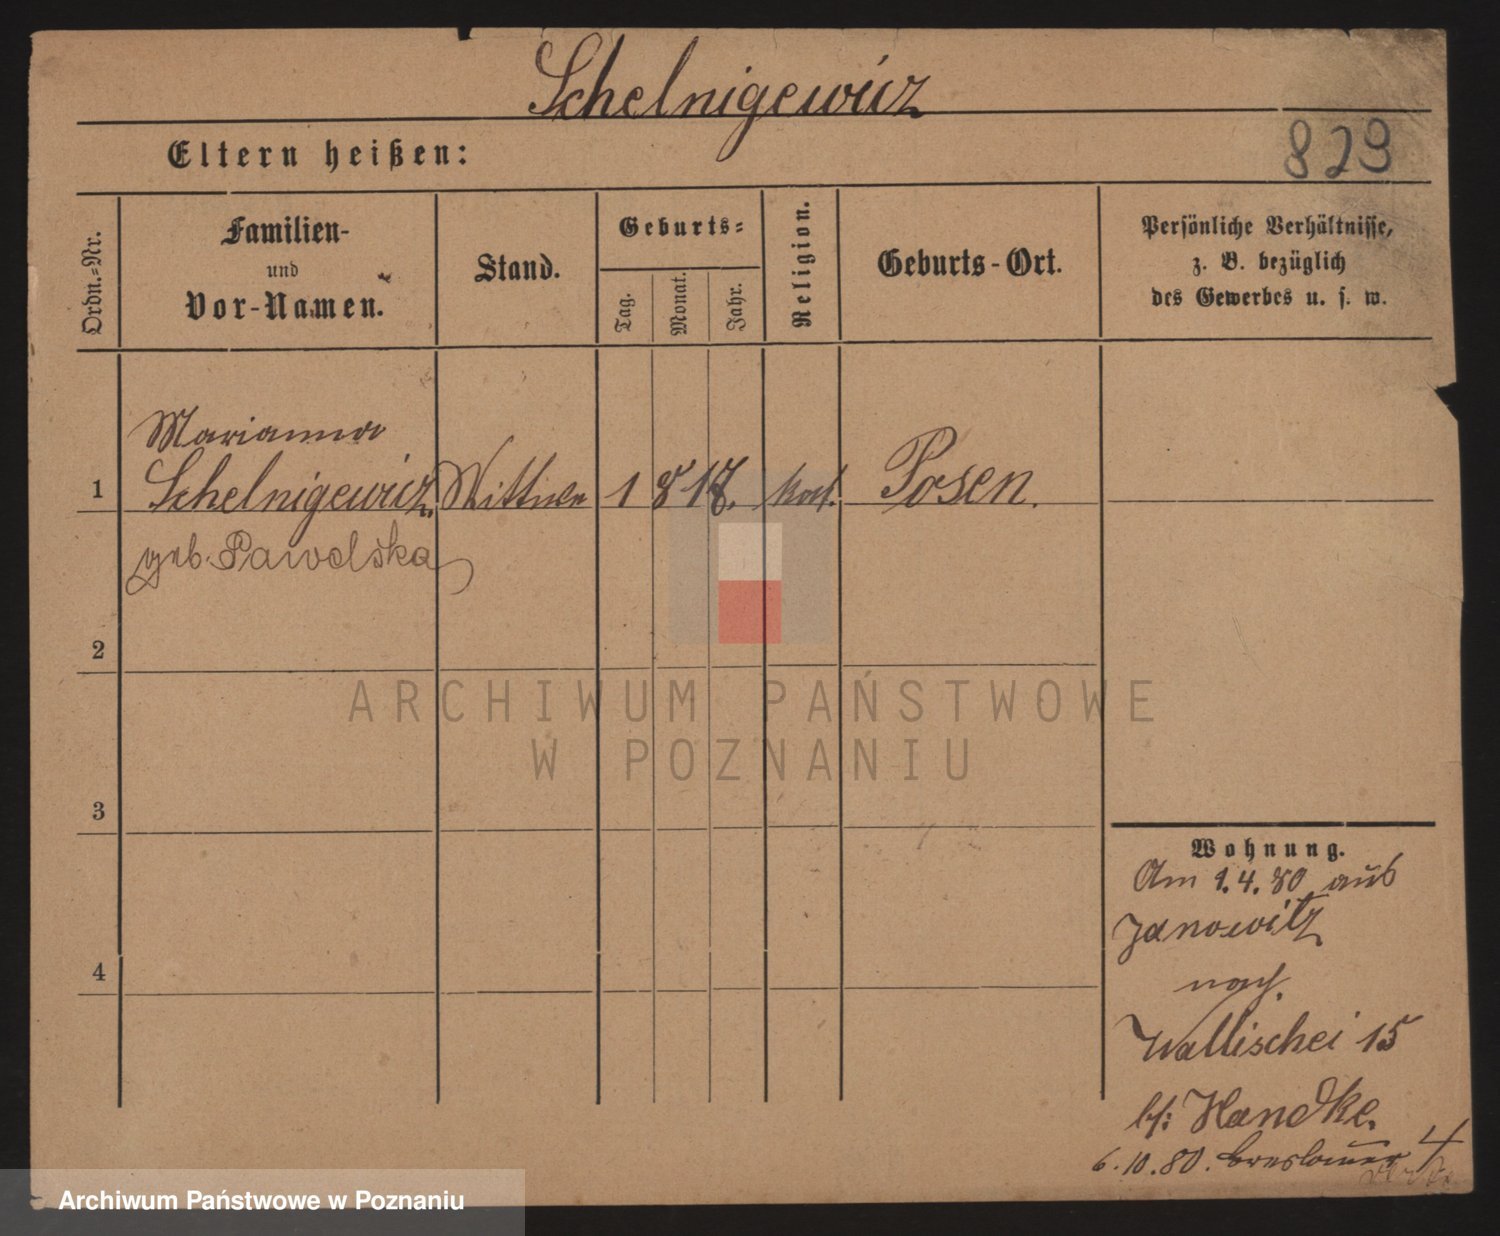 Schelnigewicz
829
Eltern heißen:
Ordn.-Nr.
Familien-
und
Vor-Namen.
Stand.
Geburts-
Tag.
Monat.
Jahr.
Religion.
Geburts-Ort.
Persönliche Verhältnisse,
z. B. bezüglich
des Gewerbes u. s. w.
Marianna
1 Schelnigewicz Wittwe 1 8 18. kath. Posen.
geb. Pawelska
2
ARCHIWUM PAŃSTWOWE
W POZNANIU
3
Wohnung.
Am 1.4.80 aus
Janowitz
nach
Wallischei 15
bei Handke.
6.10.80. Breslauer 4
4
Archiwum Państwowe w Poznaniu